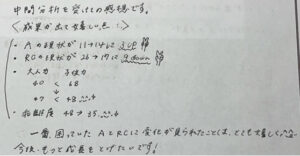 中間分析を受けての感想です。
〈成果が出て嬉しい点!〉
・Aの現状が11→14に3UP
・RCの現状が26→17に9down
・大人力 子供力
40 < 68
↓
47 < 48
・拒絶度 48→35
一番困っていたAとRCに変化が見られたことは、とても嬉しく
今後、もっと成長をとげたいです!